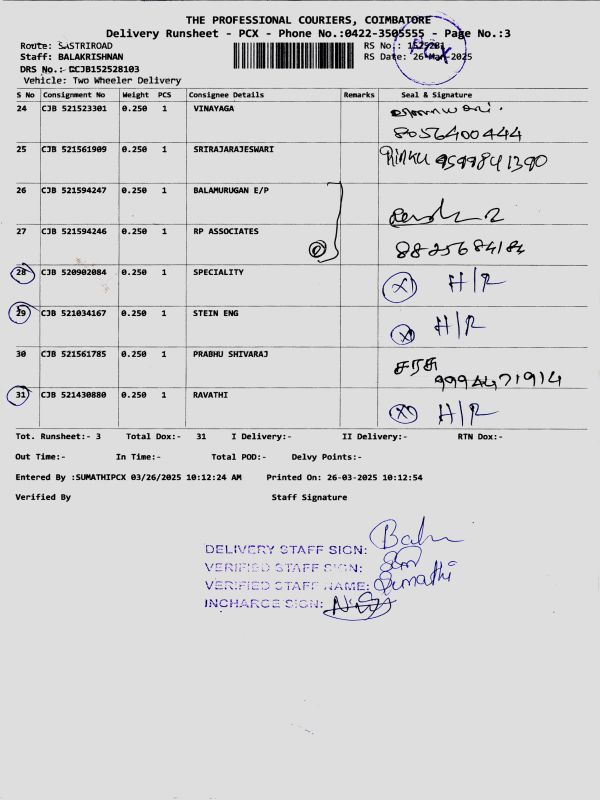 THE PROFESSIONAL COURIERS, COIMBATORE
Delivery Runsheet - PCX - Phone No.:0422-3505555 - Page No.:3
Route: SASTRIROAD RS No.: 1525281
Staff: BALAKRISHNAN RS Date: 26-Mar-2025
DRS No.:- CCJB152528103
Vehicle: Two Wheeler Delivery
PCX
S No Consignment No Weight PCS Consignee Details Remarks Seal & Signature
24 CJB 521523301 0.250 1 VINAYAGA
8056400444
25 CJB 521561909 0.250 1 SRIRAJARAJESWARI Rinku 9599841390
26 CJB 521594247 0.250 1 BALAMURUGAN E/P
27 CJB 521594246 0.250 1 RP ASSOCIATES
8825684184
28 CJB 520902084 0.250 1 SPECIALITY X H/R
29 CJB 521034167 0.250 1 STEIN ENG X H/R
30 CJB 521561785 0.250 1 PRABHU SHIVARAJ சரசு
9994471914
31 CJB 521430880 0.250 1 RAVATHI X H/R
Tot. Runsheet:- 3 Total Dox:- 31 I Delivery:- II Delivery:- RTN Dox:-
Out Time:- In Time:- Total POD:- Delvy Points:-
Entered By :SUMATHIPCX 03/26/2025 10:12:24 AM Printed On: 26-03-2025 10:12:54
Verified By Staff Signature
DELIVERY STAFF SIGN: Bala
VERIFIED STAFF SIGN:
VERIFIED STAFF NAME: Sumathi
INCHARGE SIGN: